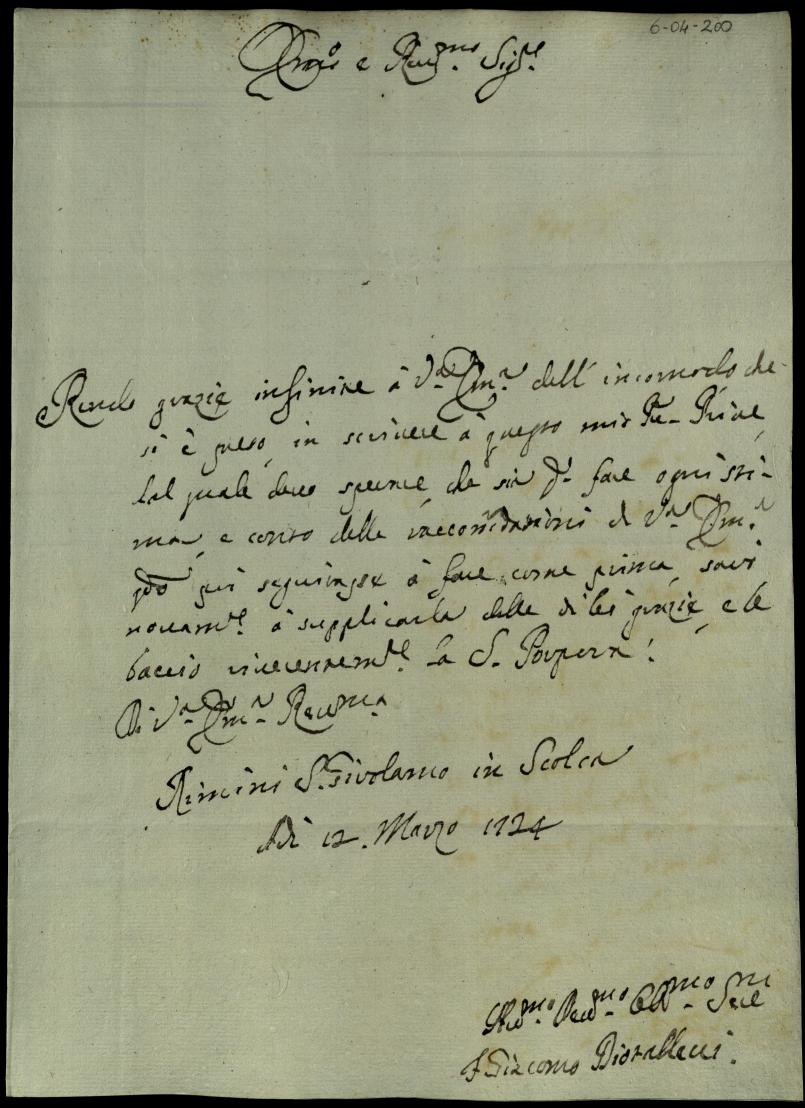 6-04-200
Em.o e Reu.mo Sig.e
Rendo grazie infinite à V.a Em.a dell'incomodo che
si è preso in scriuere à questo mio Pre Priore
dal quale deuo sperare, che sia p. fare ogni sti-
ma, e conto delle raccomdazioni di V.a Em.a
qdo poi seguirasse à fare come prima, sarò
nouam.e à supplicarla delle di lei grazie, e le
baccio riuerentem.te la S. Porpora.
Di V.a Em.a Reu.ma
Rimini S. Girolamo in Scolca
Adi 12. Marzo 1724
Hu.mo Deu.mo Obl.mo Ser.e
F. Giacomo